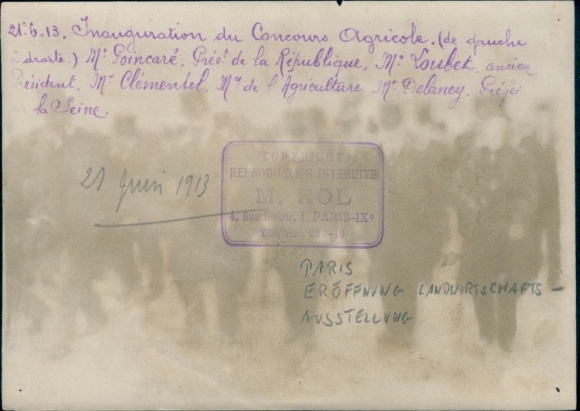 21-6.13. Inauguration du Concours Agricole. (de gauche
à droite.) Mr Poincaré. Prést de la République, Mr Loubet, ancien
Président, Mr Clémentel, Mre de l'Agriculture, Mr Delaney, Préfet
la Seine.
COPYRIGHT
REPRODUCTION INTERDITE
M. ROL
4, Rue Richer, 4, PARIS-IXe
Téléphone
21 Juin 1913
PARIS
ERÖFFNUNG LANDWIRTSCHAFTS-
AUSSTELLUNG